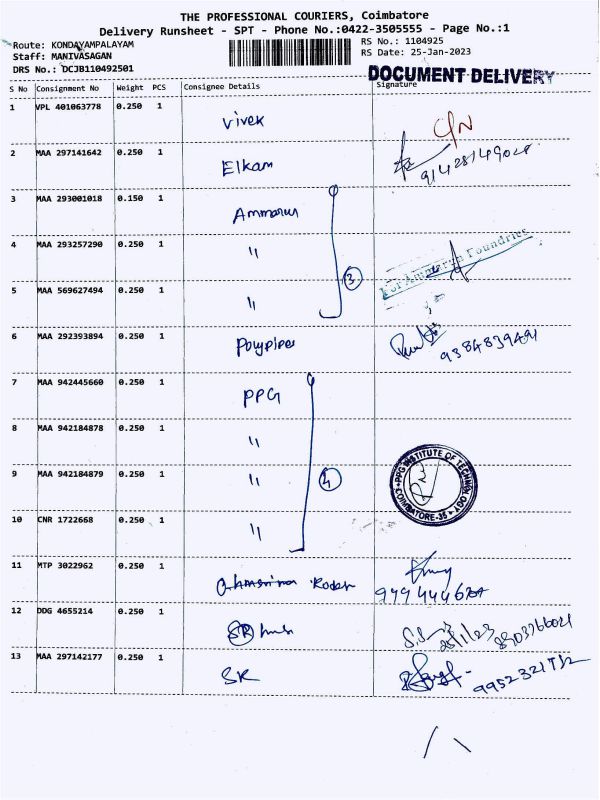 THE PROFESSIONAL COURIERS, Coimbatore
Delivery Runsheet - SPT - Phone No.:0422-3505555 - Page No.:1
Route: KONDAYAMPALAYAM
RS No.: 1104925
Staff: MANIVASAGAN
RS Date: 25-Jan-2023
DRS No.: DCJB110492501
DOCUMENT DELIVERY
S No Consignment No Weight PCS Consignee Details Signature
1 VPL 401063778 0.250 1 Vivek C/N
2 MAA 297141642 0.250 1 Elkam
3 MAA 293001018 0.150 1 Ammarun
4 MAA 293257290 0.250 1 "
For Ammarun Foundries
3
5 MAA 569627494 0.250 1 "
6 MAA 292393894 0.250 1 Polypipes 9384839491
7 MAA 942445660 0.250 1 PPG
8 MAA 942184878 0.250 1 "
9 MAA 942184879 0.250 1 " 4
PPG INSTITUTE OF TECHNOLOGY COIMBATORE-35
10 CNR 1722668 0.250 1 "
11 MTP 3022962 0.250 1
12 DDG 4655214 0.250 1 SR 25/1/23
13 MAA 297142177 0.250 1 SK